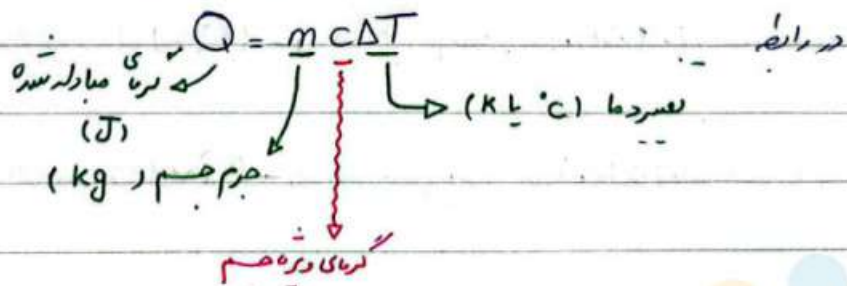 در رابطه Q = mcΔT
گرمای مبادله شده
(J)
تغییر دما (°C یا K)
جرم جسم (kg)
گرمای ویژه جسم